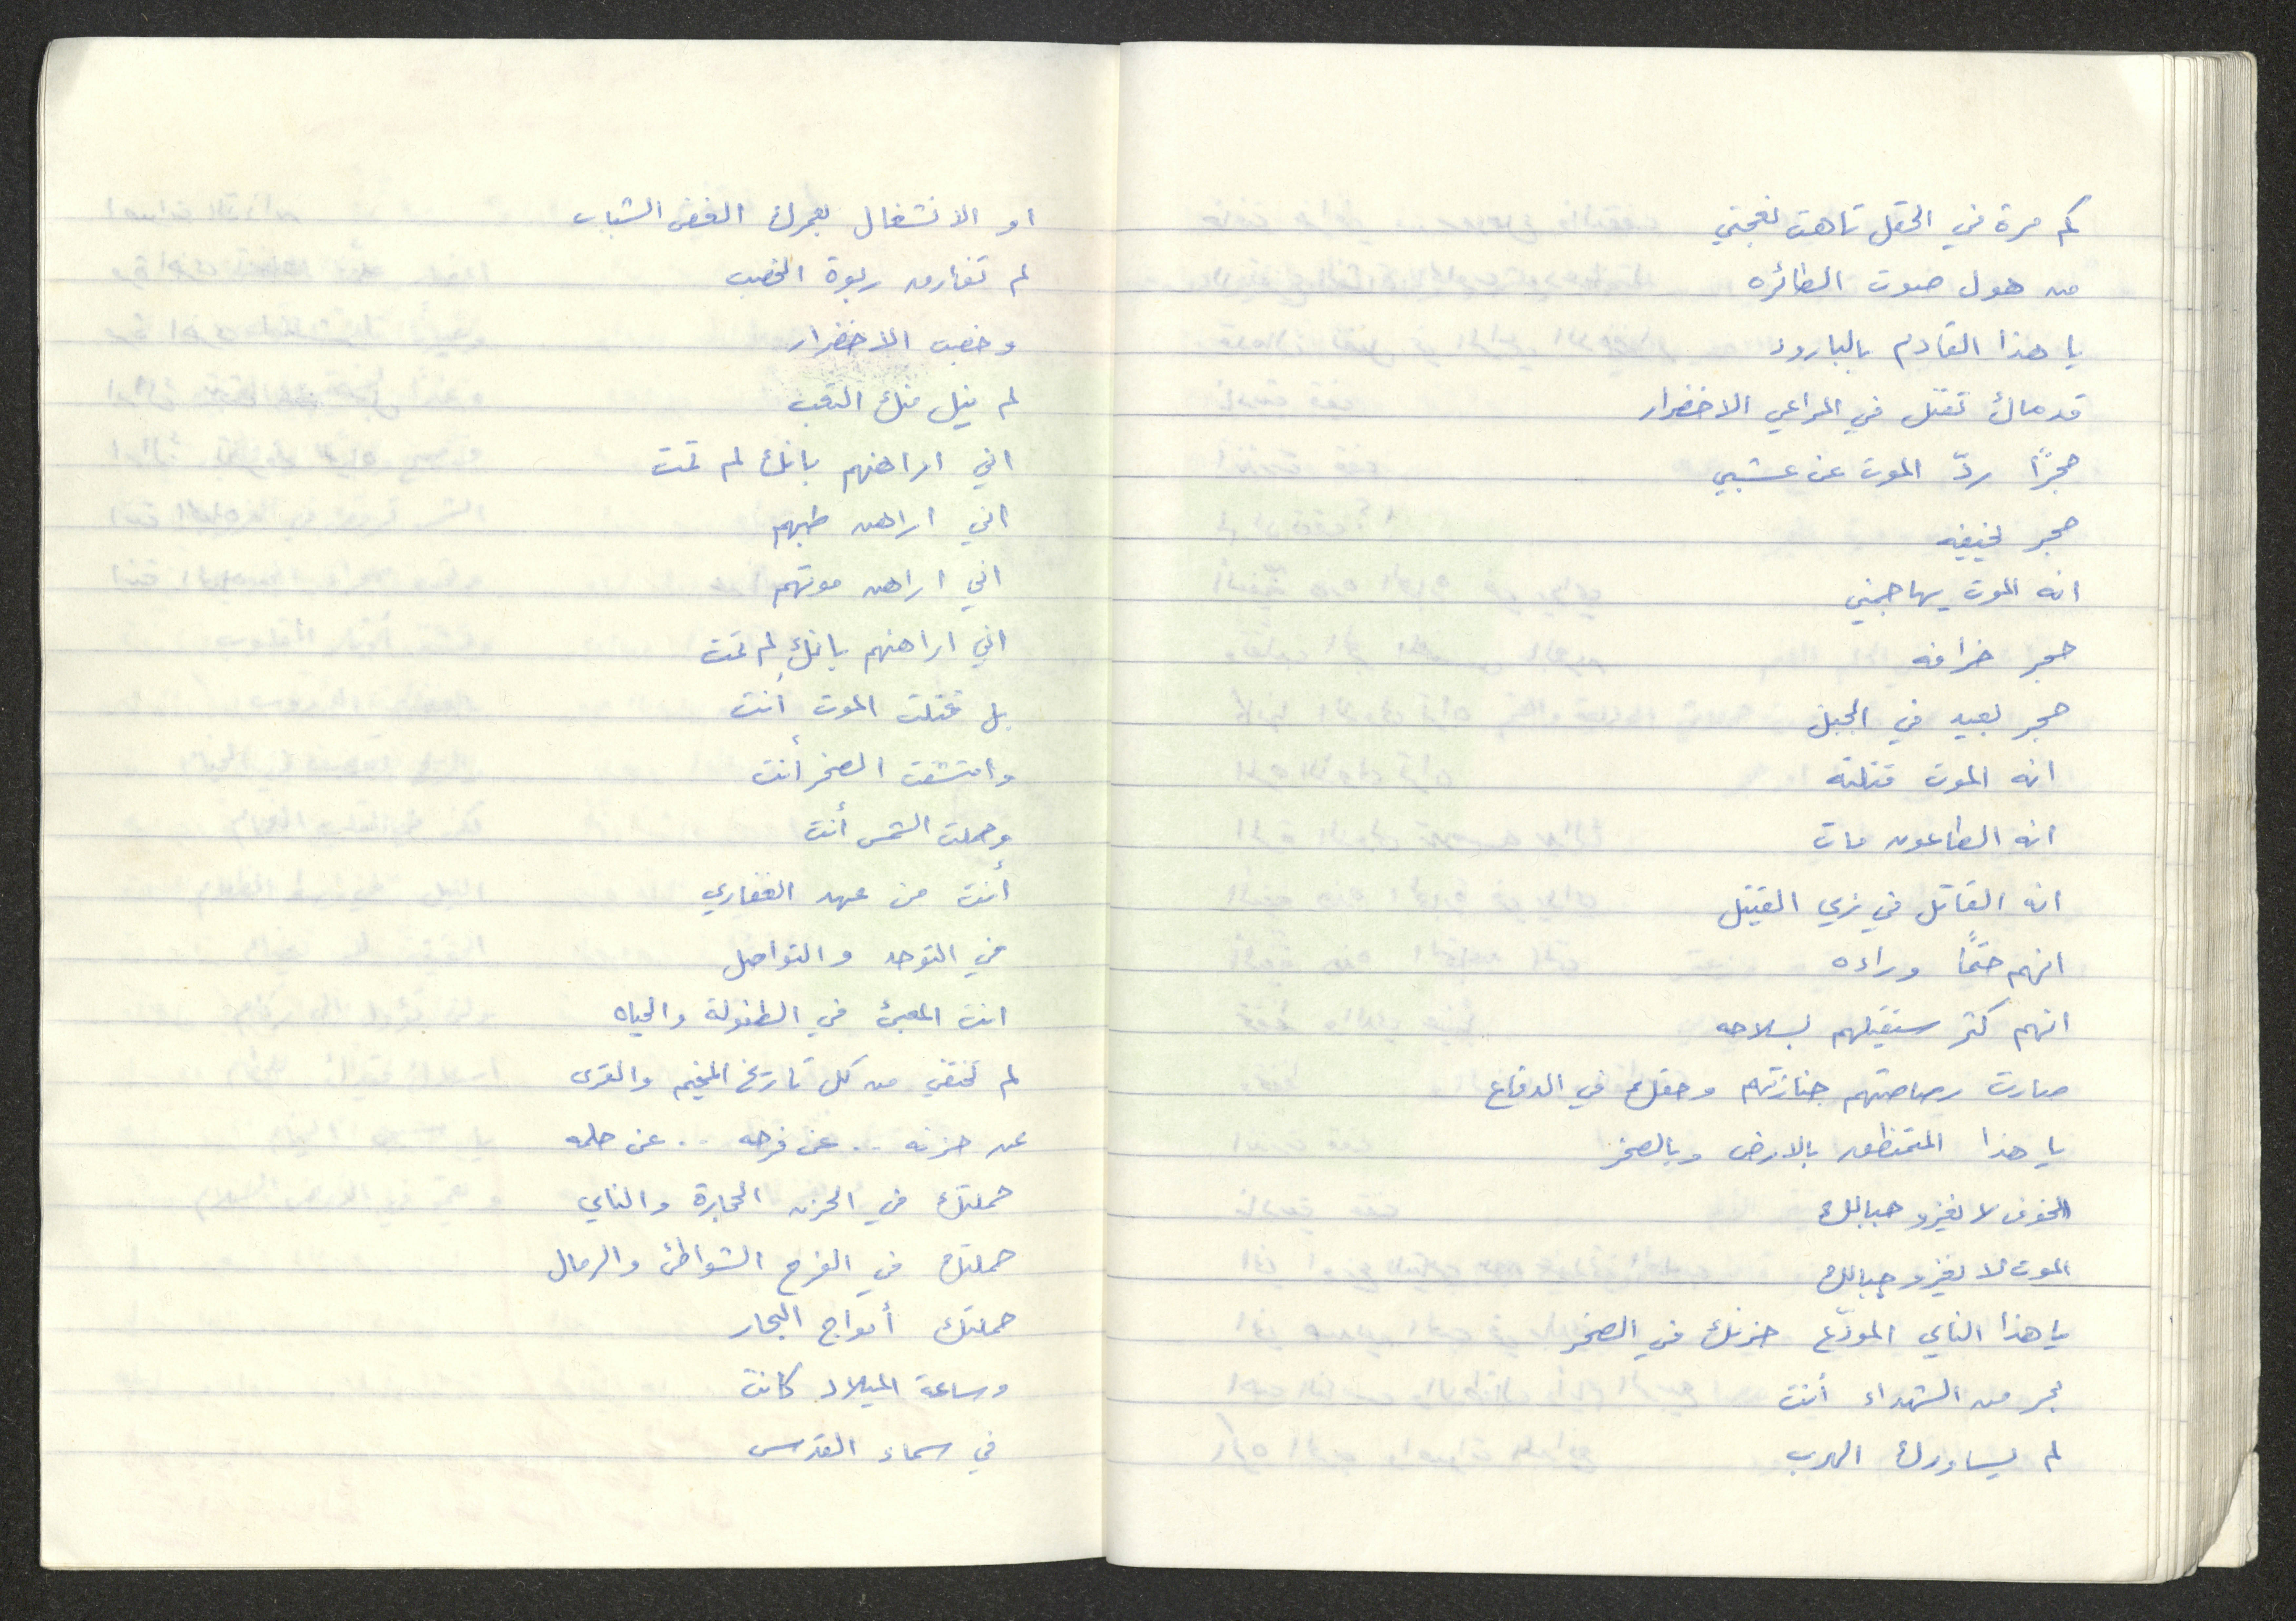 كم مرة في الحقل تاهت نعجتي
من هول صوت الطائره
يا هذا القادم بالبارود
قدماك تقتل في المراعي الاخضرار
حجرًا ردّ الموت عن عشبي
حجر نخيفه
انه الموت يهاجمني
حجر خرافه
حجر بعيد في الجبل
انه الموت قتلته
انه الطاعون مات
انه القاتل في زي القتيل
انهم حتمًا وراءه
انهم كثر ستقتلهم بسلاحه
صارت رصاصتهم جنازتهم وحقك في الدفاع
يا هذا المتمنطق بالارض وبالصخر
الخوف لا يغزو جبالك
الموت لا يغزو جبالك
يا هذا الناي الموزّع حزنك في الصخر
بحر من الشهداء أنت
لم يساورك الهرب
او الانشغال بعمرك الغض الشباب
لم تفارق ربوة الخصب
وخصب الاخضرار
لم ينل منك التعب
اني اراهنهم بانك لم تمت
اني اراهن طبهم
اني اراهن موتهم
اني اراهنهم بانك لم تمت
بل قتلت الموت أنت
وامتشقت الصخر أنت
وحملت الشمس أنت
أنت من عهد الغفاري
في التوحد والتواصل
انت المعبئ في الطفولة والحياه
لم تختفي من كل تاريخ المخيم والقرى
عن حزنه .. عن فرحه .. عن حلمه
حملتك في الحزن الحجارة والناي
حملتك في الفرح الشواطئ والرمال
حملتك أمواج البحار
وساعة الميلاد كانت
في سماء القدس